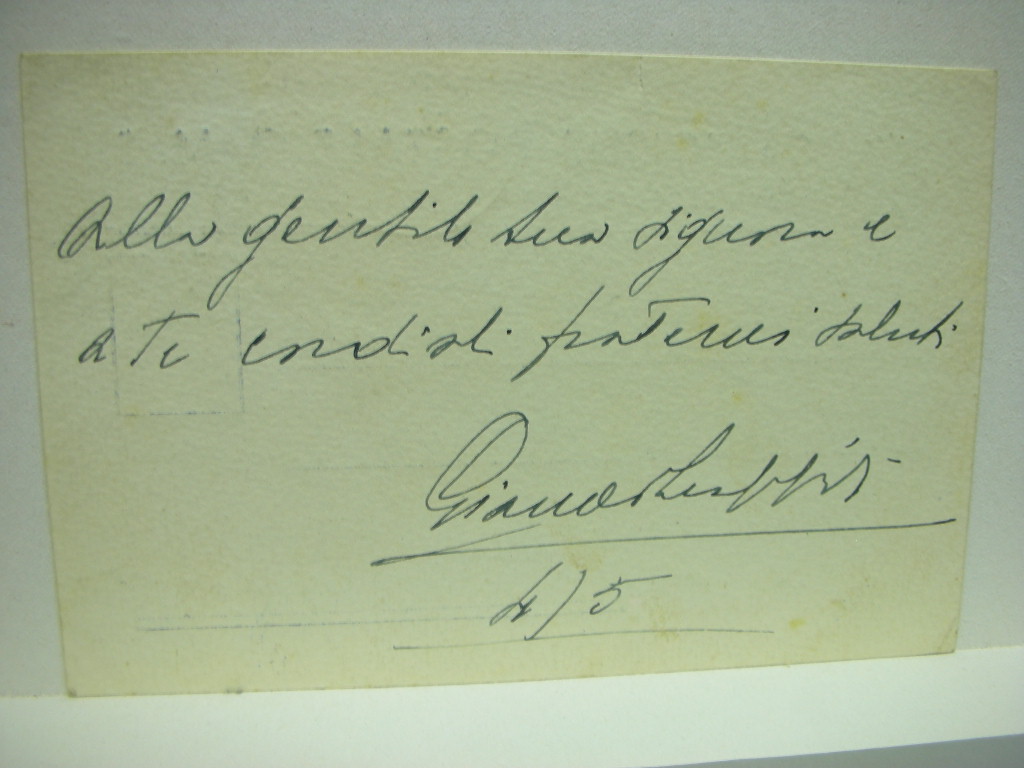 Alla gentile tua signora e
a Te cordiali fraterni saluti
4/5